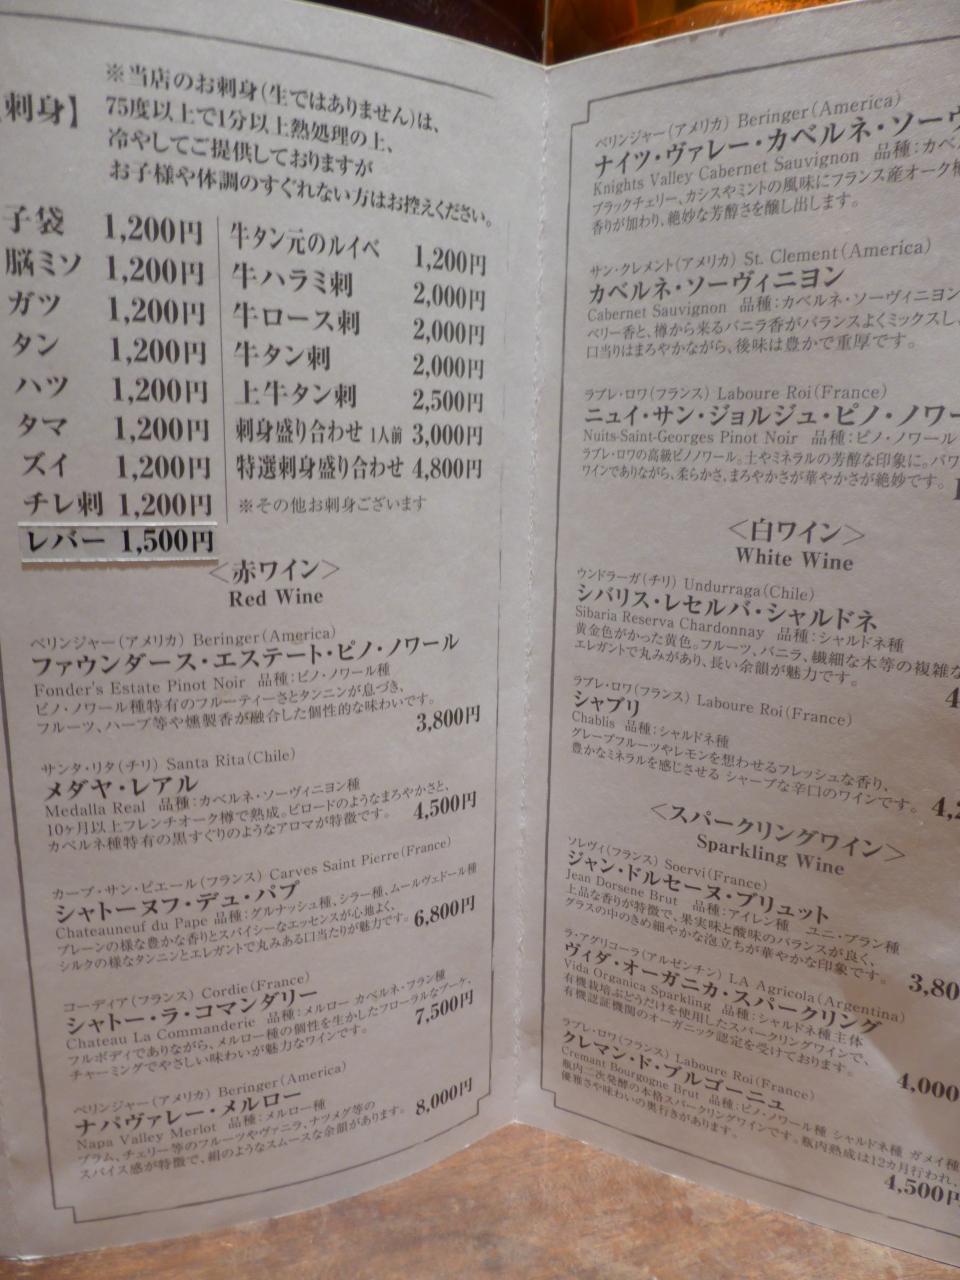 刺身】
※当店のお刺身(生ではありません)は、
75度以上で1分以上熱処理の上、
冷やしてご提供しておりますが
お子様や体調のすぐれない方はお控えください。
子袋 1,200円
脳ミソ 1,200円
ガツ 1,200円
タン 1,200円
ハツ 1,200円
タマ 1,200円
ズイ 1,200円
チレ刺 1,200円
レバー 1,500円
牛タン元のルイベ 1,200円
牛ハラミ刺 2,000円
牛ロース刺 2,000円
牛タン刺 2,000円
上牛タン刺 2,500円
刺身盛り合わせ 1人前 3,000円
特選刺身盛り合わせ 4,800円
※その他お刺身ございます
＜赤ワイン＞
Red Wine
ベリンジャー(アメリカ) Beringer(America)
ファウンダース・エステート・ピノ・ノワール
Fonder's Estate Pinot Noir 品種:ピノ・ノワール種
ピノ・ノワール種特有のフルーティーさとタンニンが息づき、
フルーツ、ハーブ等や燻製香が融合した個性的な味わいです。
3,800円
サンタ・リタ(チリ) Santa Rita(Chile)
メダヤ・レアル
Medalla Real 品種:カベルネ・ソーヴィニヨン種
10ヶ月以上フレンチオーク樽で熟成。ビロードのようなまろやかさと、
カベルネ種特有の黒すぐりのようなアロマが特徴です。 4,500円
カーブ・サン・ピエール(フランス) Carves Saint Pierre(France)
シャトーヌフ・デュ・パプ
Chateauneuf du Pape 品種:グルナッシュ種、シラー種、ムールヴェドール種
プレーンの様な豊かな香りとスパイシーなエッセンスが心地よく、
シルクの様なタンニンとエレガントで丸みある口当たりが魅力です。 6,800円
コーディア(フランス) Cordie(France)
シャトー・ラ・コマンダリー
Chateau La Commanderie 品種:メルロー カベルネ・フラン種
フルボディでありながら、メルロー種の個性を生かしたフローラルなブーケ、
チャーミングでやさしい味わいが魅力なワインです。 7,500円
ベリンジャー(アメリカ) Beringer(America)
ナパヴァレー・メルロー
Napa Valley Merlot 品種:メルロー種
プラム、チェリー等のフルーツやヴァニラ、ナツメグ等の
スパイス感が特徴で、絹のようなスムースな余韻があります。 8,000円
ベリンジャー(アメリカ) Beringer(America)
ナイツ・ヴァレー・カベルネ・ソーヴ
Knights Valley Cabernet Sauvignon 品種:カベル
ブラックチェリー、カシスやミントの風味にフランス産オーク樽
香りが加わり、絶妙な芳醇さを醸し出します。
サン・クレメント(アメリカ) St. Clement(America)
カベルネ・ソーヴィニヨン
Cabernet Sauvignon 品種:カベルネ・ソーヴィニヨン
ベリー香と、樽から来るバニラ香がバランスよくミックスし、
口当りはまろやかながら、後味は豊かで重厚です。
ラブレ・ロワ(フランス) Laboure Roi(France)
ニュイ・サン・ジョルジュ・ピノ・ノワー
Nuits-Saint-Georges Pinot Noir 品種:ピノ・ノワール
ラブレ・ロワの高級ピノノワール。土やミネラルの芳醇な印象に。パワ
ワインでありながら、柔らかさ、まろやかさが華やかさが絶妙です。
＜白ワイン＞
White Wine
ウンドラーガ(チリ) Undurraga(Chile)
シバリス・レセルバ・シャルドネ
Sibaria Reserva Chardonnay 品種:シャルドネ種
黄金色がかった黄色。フルーツ、バニラ、繊細な木等の複雑な
エレガントで丸みがあり、長い余韻が魅力です。
4
ラブレ・ロワ(フランス) Laboure Roi(France)
シャブリ
Chablis 品種:シャルドネ種
グレープフルーツやレモンを想わせるフレッシュな香り、
豊かなミネラルを感じさせる シャープな辛口のワインです。 4,2
＜スパークリングワイン＞
Sparkling Wine
ソレヴィ(フランス) Soervi(France)
ジャン・ドルセーヌ・ブリュット
Jean Dorsene Brut 品種:アイレン種 ユニ・ブラン種
上品な香りが特徴で、果実味と酸味のバランスが良く、
グラスの中のきめ細やかな泡立ちが華やかな印象です。 3,80
ラ・アグリコーラ(アルゼンチン) LA Agricola(Argentina)
ヴィダ・オーガニカ・スパークリング
Vida Organica Sparkling 品種:シャルドネ種主体
有機栽培ぶどうだけを使用したスパークリングワインで、
有機認証機関のオーガニック認定を受けております。 4,000
ラブレ・ロワ(フランス) Laboure Roi(France)
クレマン・ド・ブルゴーニュ
Cremant Bourgogne Brut 品種:ピノ・ノワール種 シャルドネ種 ガメイ種
瓶内二次発酵の本格スパークリングワインです。瓶内熟成は12カ月行われ、
優雅さや味わいの奥行きがあります。
4,500円